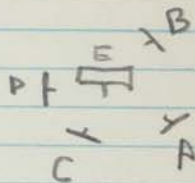 B
E
D
C
A